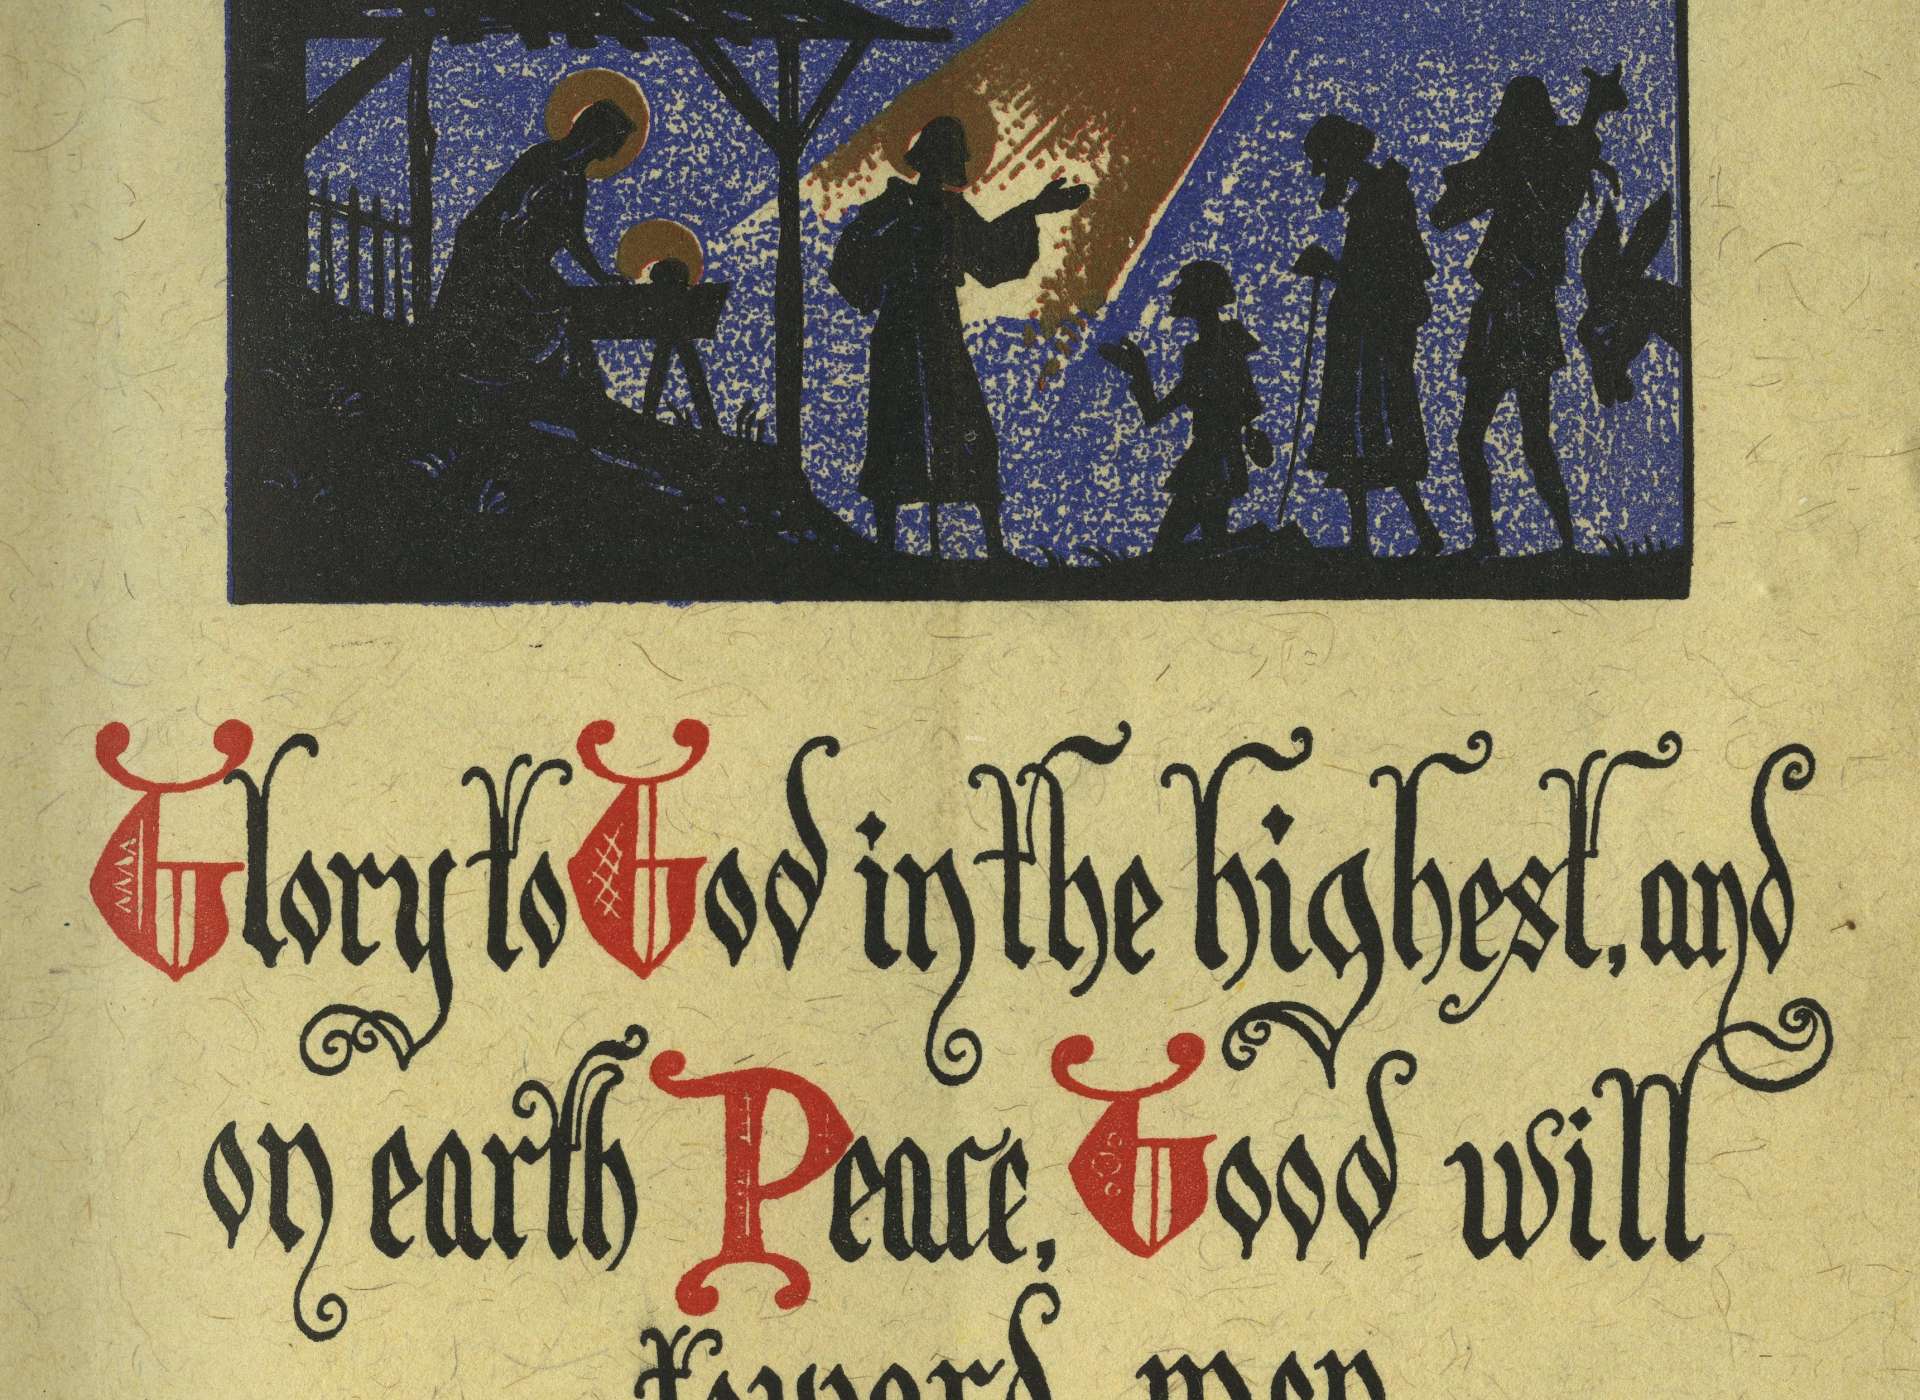 Glory to God in the highest, and
on earth Peace, Good will
toward men